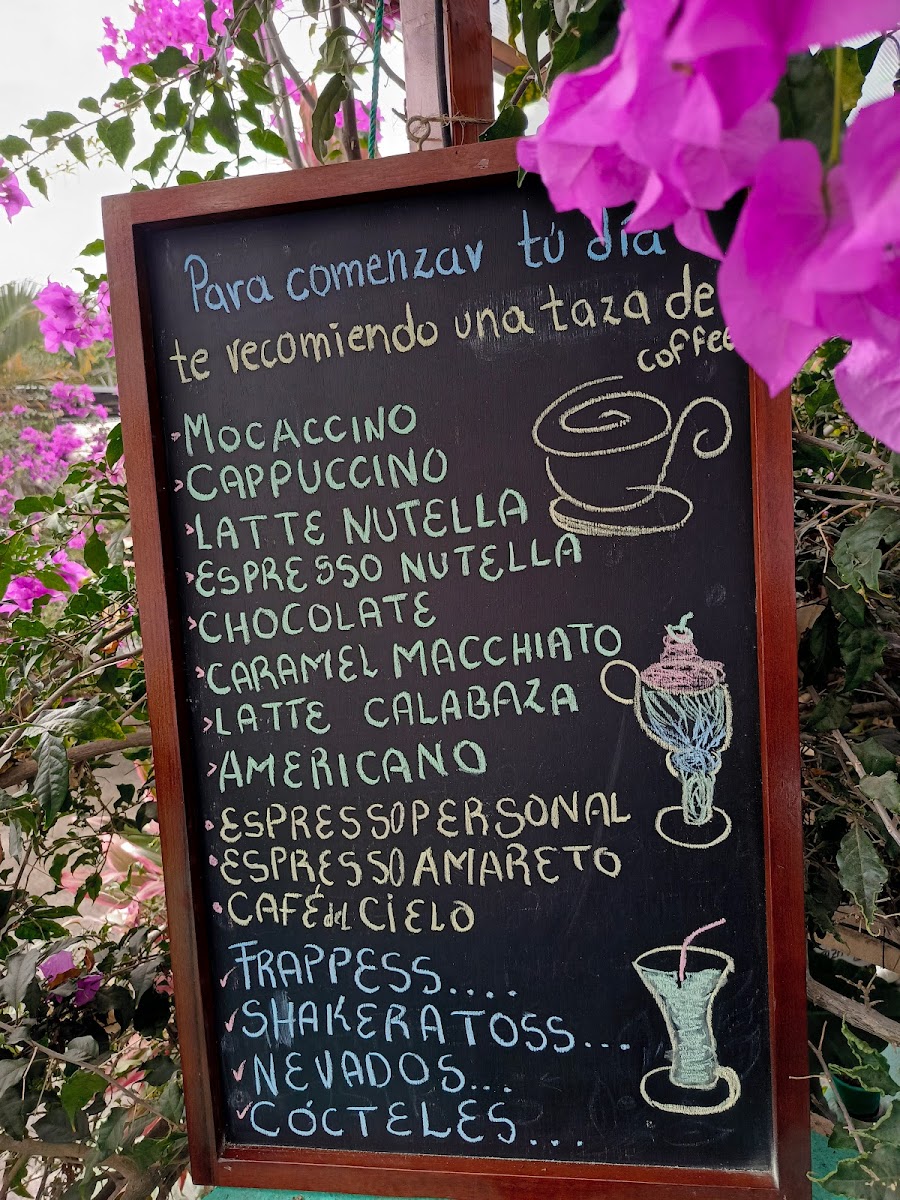 Para comenzar tú día
te recomiendo una taza de
coffee
MOCACCINO
CAPPUCCINO
LATTE NUTELLA
ESPRESSO NUTELLA
CHOCOLATE
CARAMEL MACCHIATO
LATTE CALABAZA
AMERICANO
ESPRESSO PERSONAL
ESPRESSO AMARETO
CAFÉ del CIELO
FRAPPESS....
SHAKERATOSS...
NEVADOS...
CÓCTELES...